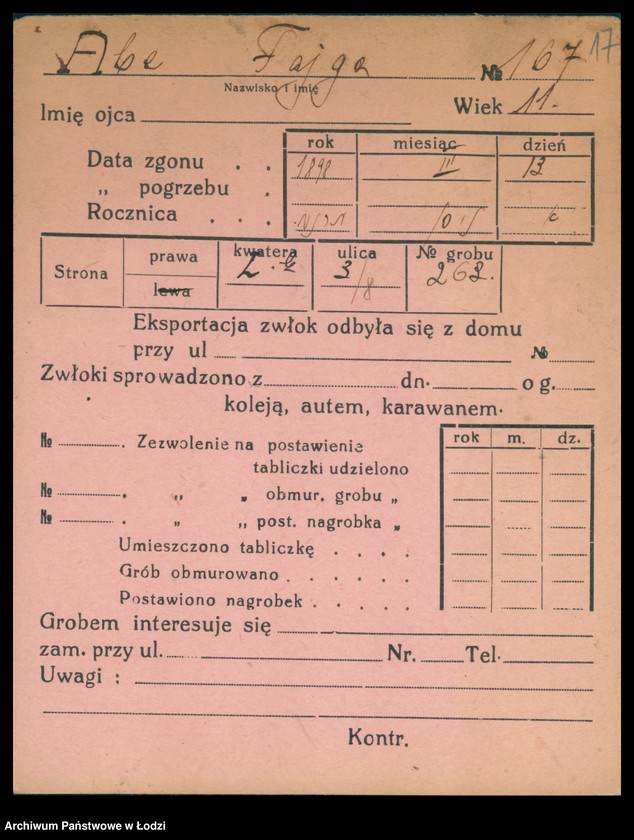 17
Abe Fajga № 167
Nazwisko i imię
Imię ojca Wiek 11.
rok miesiąc dzień
Data zgonu . . 1898 III 13
„ pogrzebu .
Rocznica . . .
Strona prawa lewa kwatera L. ulica 3/8 № grobu 263.
Eksportacja zwłok odbyła się z domu
przy ul №
Zwłoki sprowadzono z dn. o g.
koleją, autem, karawanem.
№ . Zezwolenie na postawienie rok m. dz.
tabliczki udzielono
№ . „ „ obmur. grobu „
№ . „ „ post. nagrobka „
Umieszczono tabliczkę . . . .
Grób obmurowano . . . . .
Postawiono nagrobek . . . .
Grobem interesuje się
zam. przy ul. Nr. Tel.
Uwagi :
Kontr.
Archiwum Państwowe w Łodzi